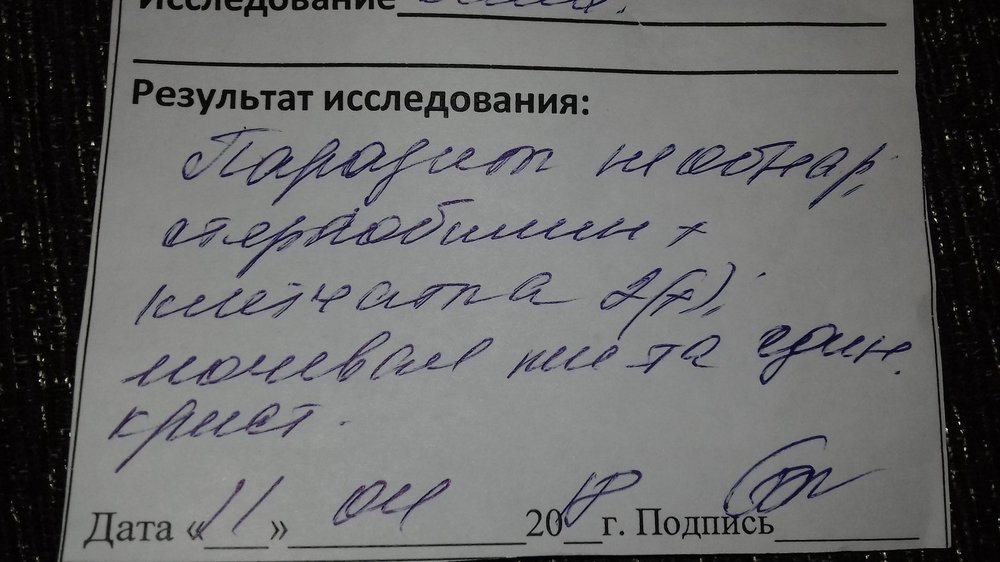 Исследование
Результат исследования:
Паразит не обнар,
стеркобилин +
клетчатка 2(+),
мочевая к-та един.
крист.
Дата «11» 04 20 г. Подпись